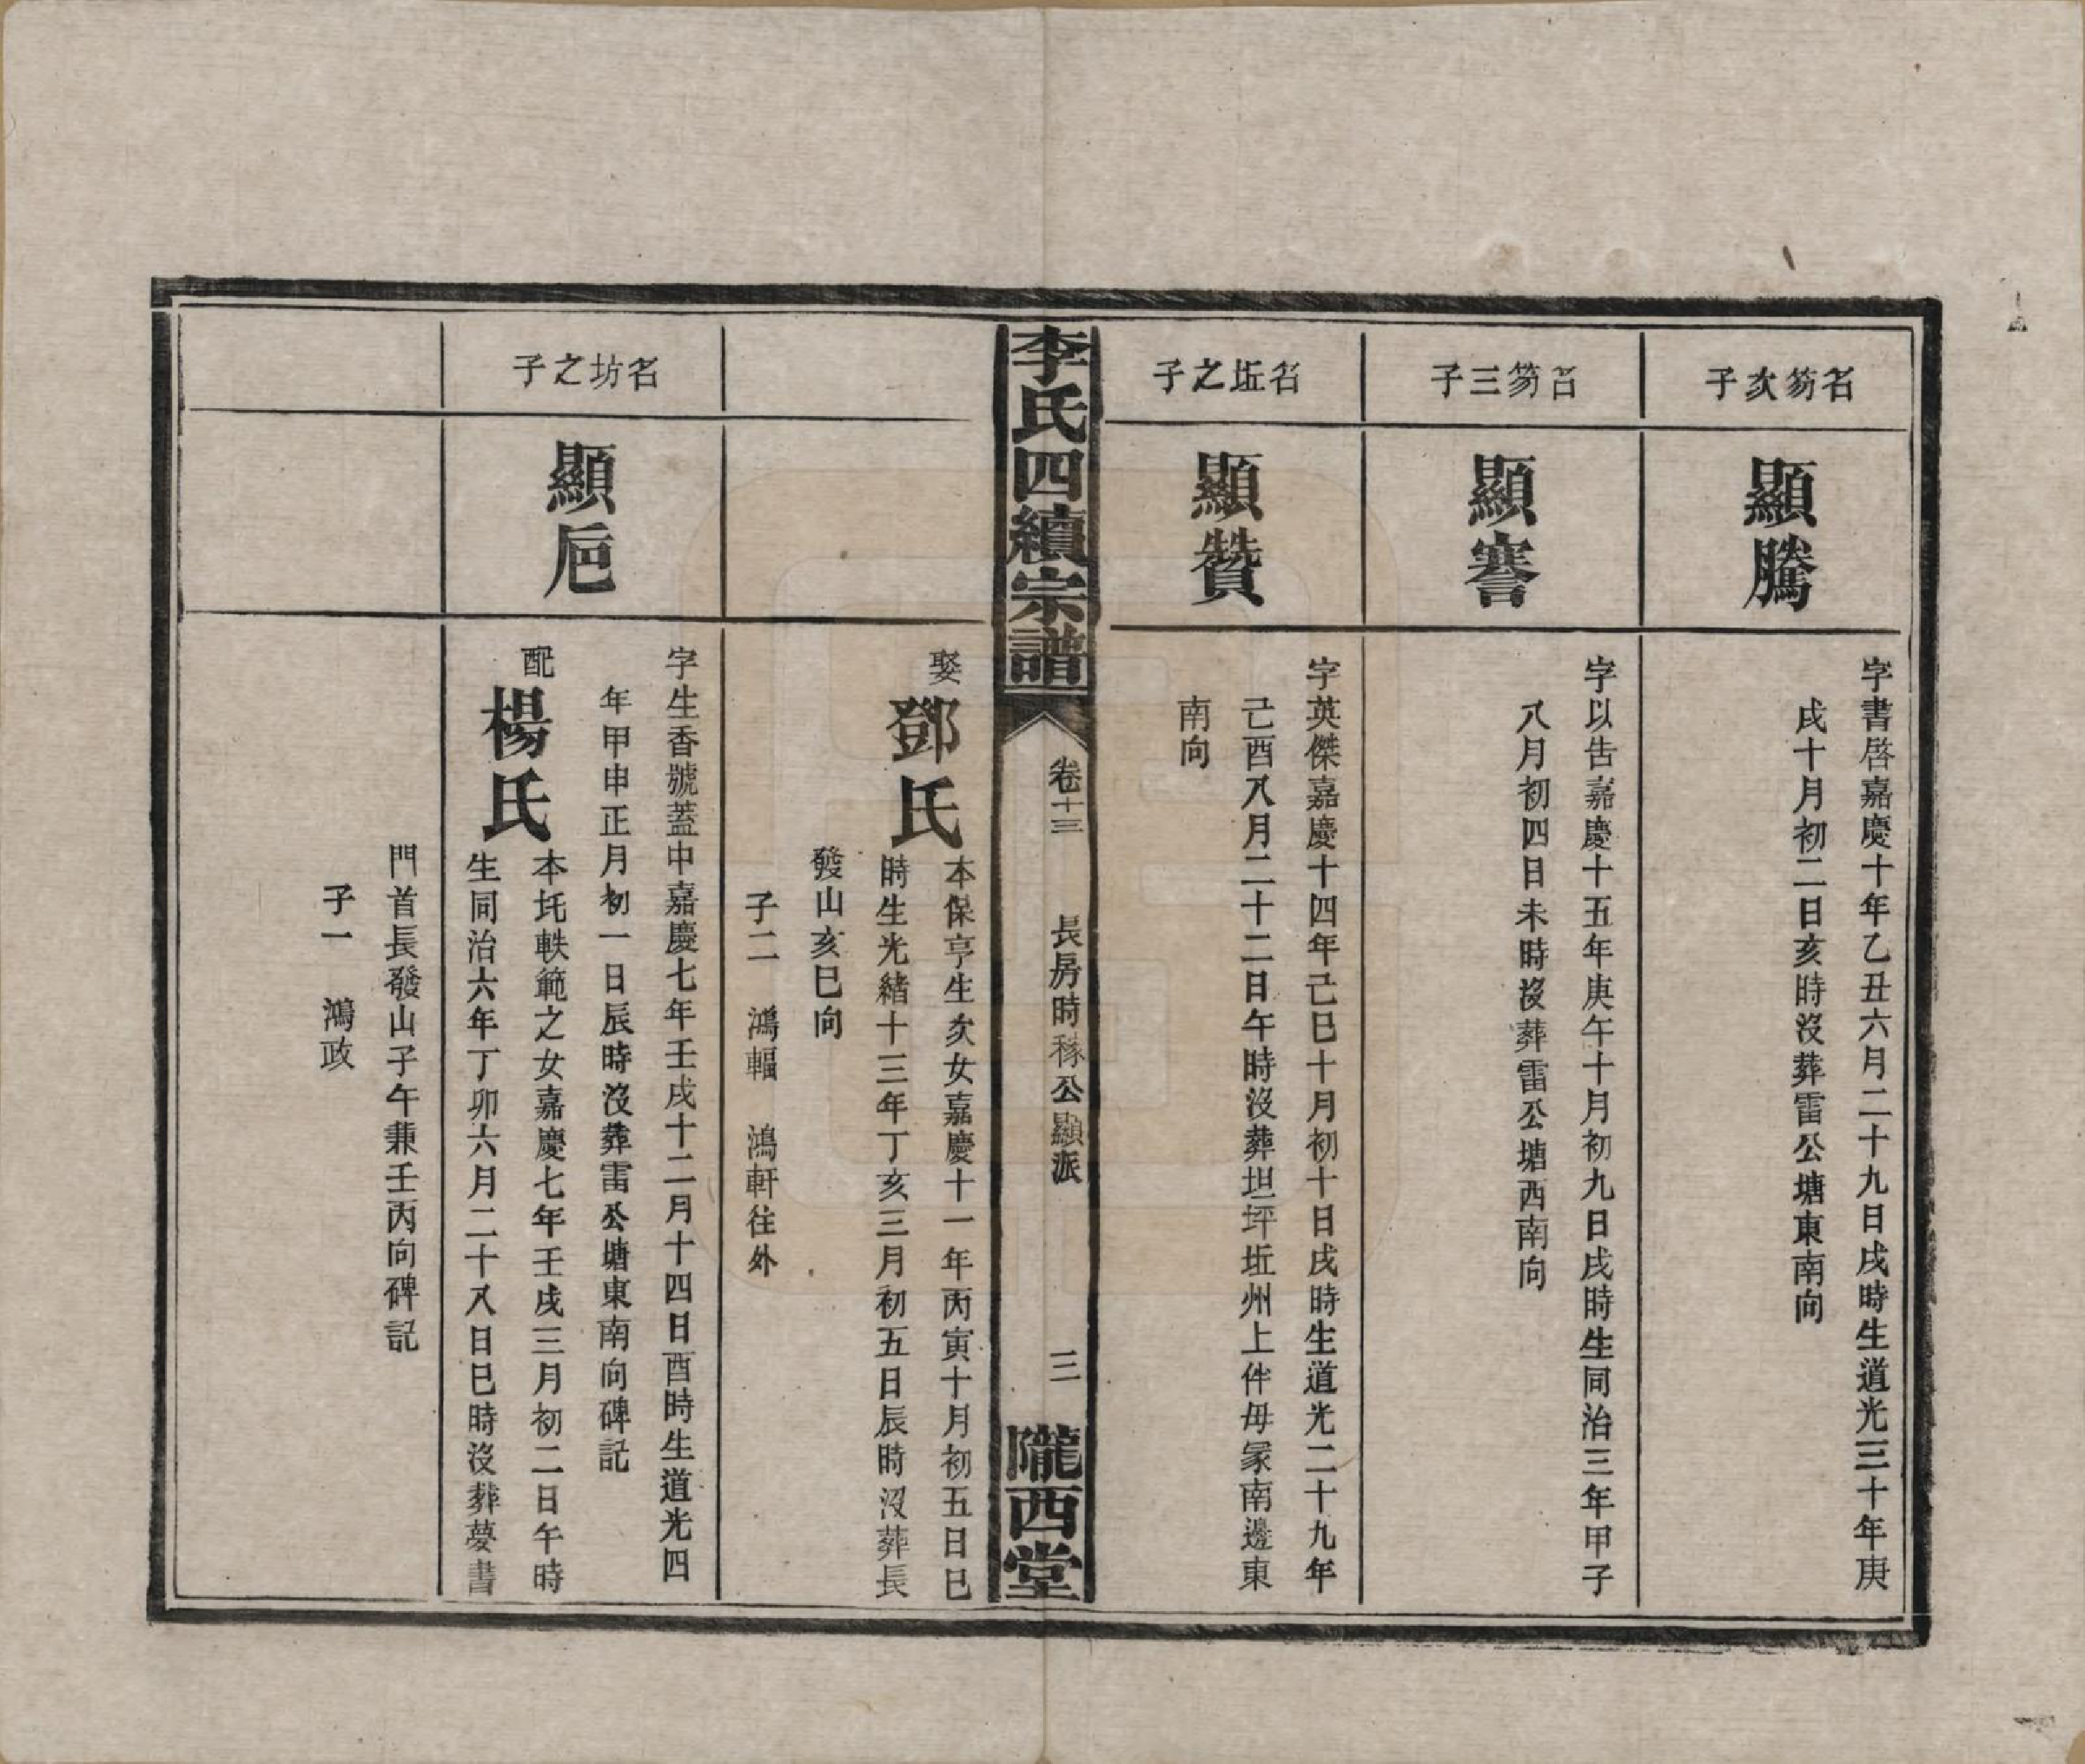 名笏次子
顯騰
字書啓嘉慶十年乙丑六月二十九日戌時生道光三十年庚
戌十月初二日亥時沒葬雷公塘東南向
名笏三子
顯謇
字以告嘉慶十五年庚午十月初九日戌時生同治三年甲子
八月初四日未時沒葬雷公塘西南向
名坵之子
顯贊
字英傑嘉慶十四年己巳十月初十日戌時生道光二十九年
己酉八月二十二日午時沒葬坦坪坵州上伴毋冢南邊東
南向
李氏四續宗譜
卷十三
長房時稼公顯派
三
隴西堂
娶
鄧氏
本保亨生次女嘉慶十一年丙寅十月初五日巳
時生光緒十三年丁亥三月初五日辰時沒葬長
發山亥巳向
子二 鴻輻 鴻軒往外
名坊之子
顯巵
字生香號蓋中嘉慶七年壬戌十二月十四日酉時生道光四
年甲申正月初一日辰時沒葬雷公塘東南向碑記
配
楊氏
本圫軼範之女嘉慶七年壬戌三月初二日午時
生同治六年丁卯六月二十八日巳時沒葬夢書
門首長發山子午兼壬丙向碑記
子一 鴻政